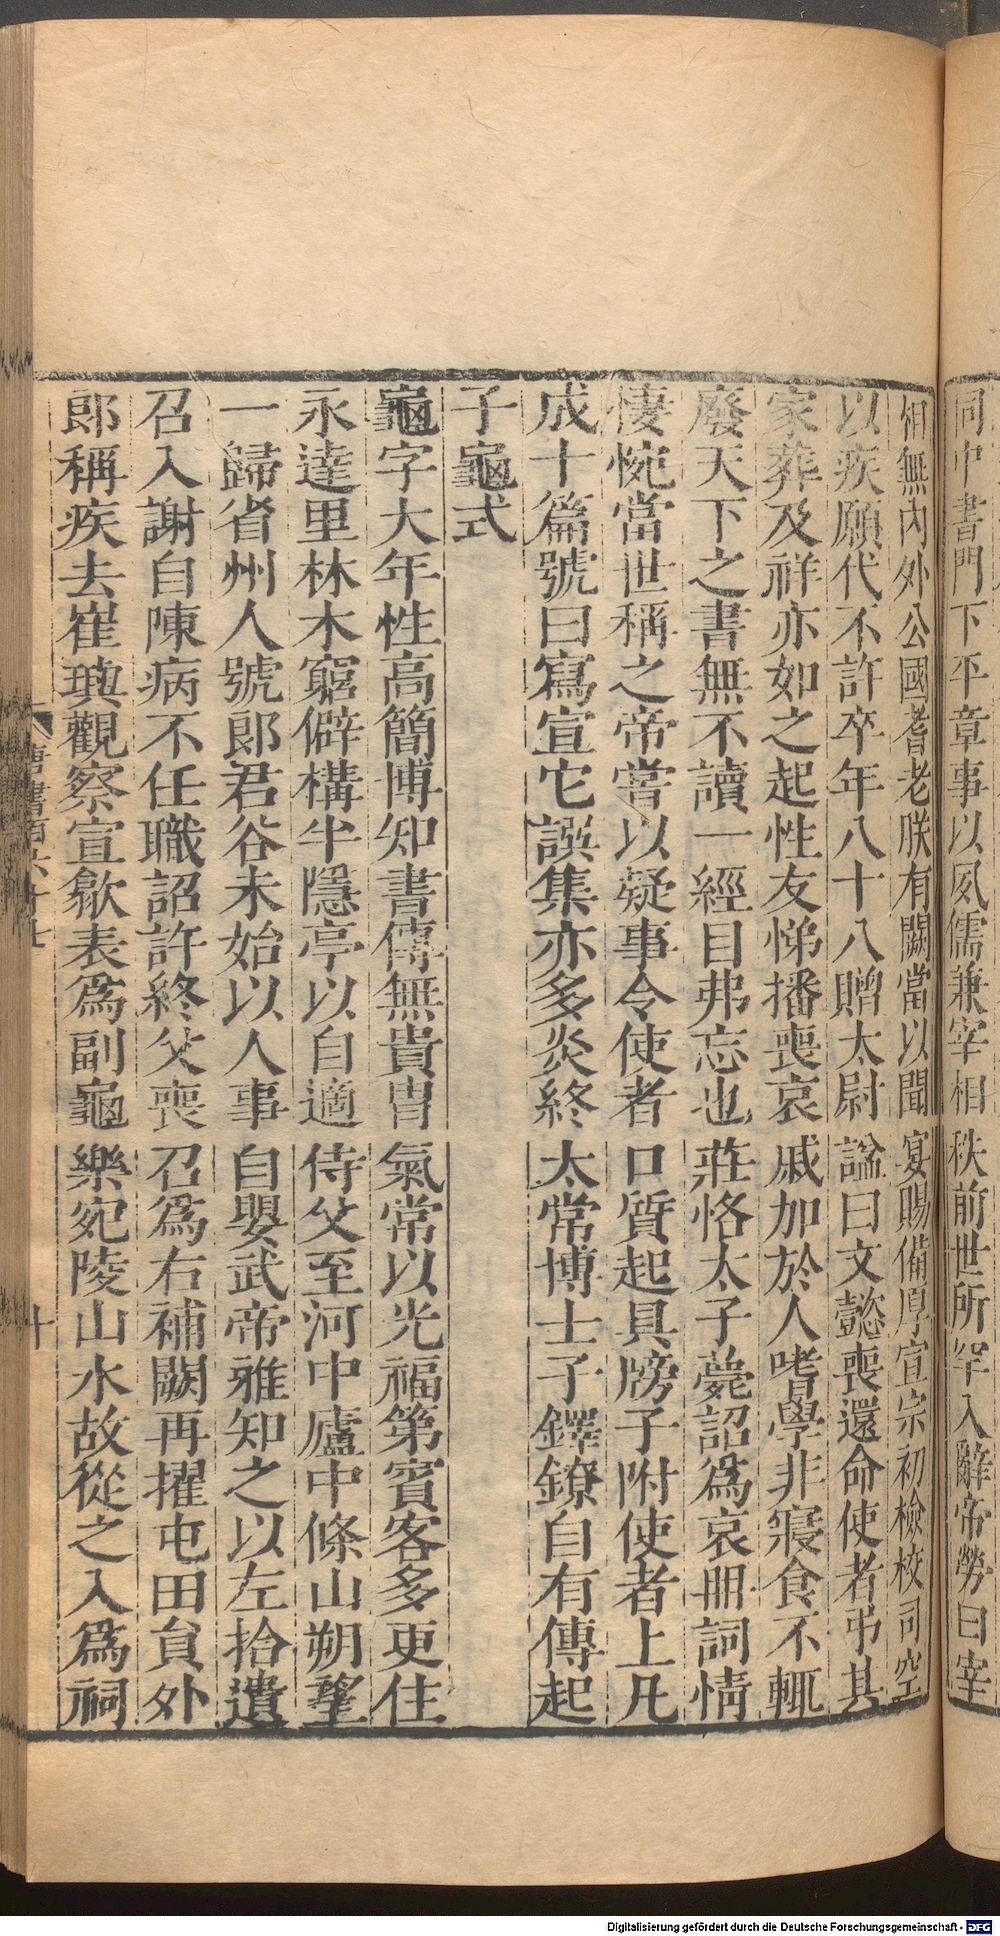 同中書門下平章事以夙儒兼宰相秩前世所罕入辭帝勞曰宰
相無內外公國耆老朕有闕當以聞宴賜備厚宣宗初檢校司空
以疾願代不許卒年八十八贈太尉諡曰文懿喪還命使者弔其
家葬及祥亦如之起性友悌播喪哀戚加於人嗜學非寢食不輒
廢天下之書無不讀一經目弗忘也莊恪太子薨詔爲哀冊詞情
悽惋當世稱之帝嘗以疑事令使者口質起具牓子附使者上凡
成十篇號曰寫宣它譔集亦多炎終太常博士子鐸鐐自有傳起
子龜式
龜字大年性高簡博知書傳無貴胄氣常以光福第賓客多更住
永達里林木窮僻構半隱亭以自適侍父至河中廬中條山朔望
一歸省州人號郎君谷未始以人事自嬰武帝雅知之以左拾遺
召入謝自陳病不任職詔許終父喪召爲右補闕再擢屯田員外
郎稱疾去崔璵觀察宣歙表爲副龜樂宛陵山水故從之入爲祠
唐書百六十七
十
Digitalisierung gefördert durch die Deutsche Forschungsgemeinschaft - DFG